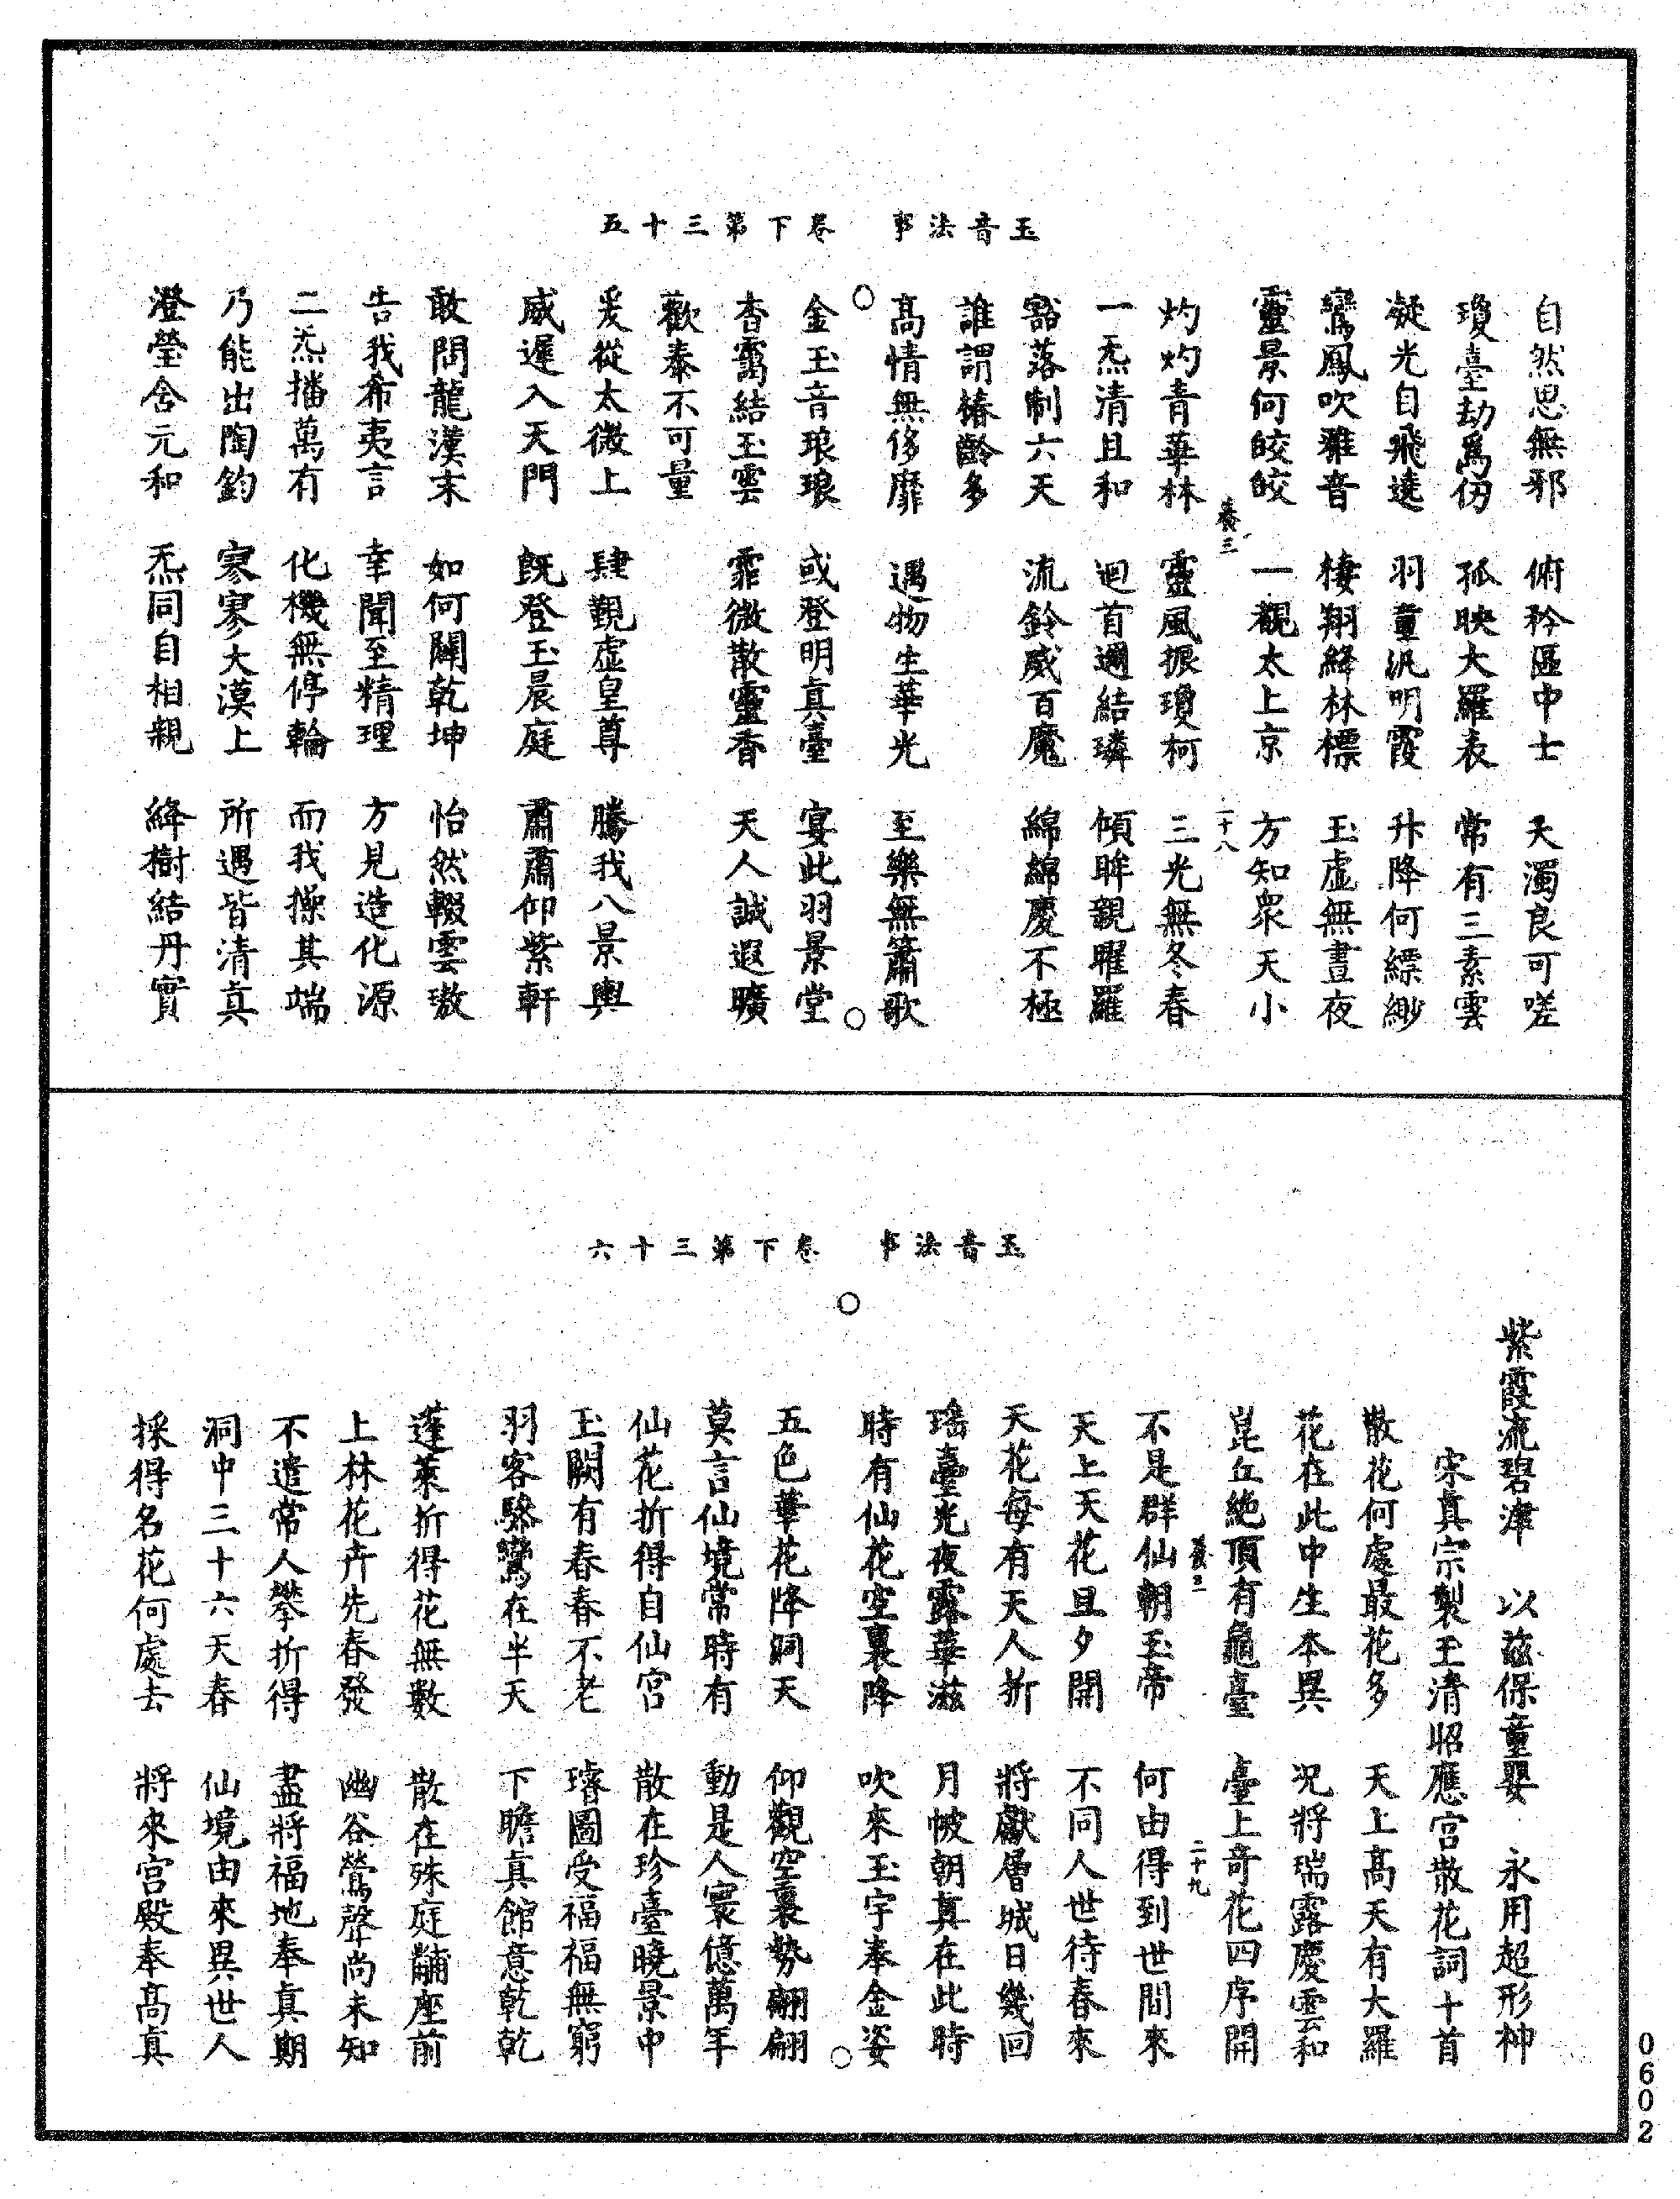 玉音法事　卷下第三十五
自然思無邪　俯矜區中士　天濁良可嗟
瓊臺劫爲仞　孤映大羅表　常有三素雲
凝光自飛遶　羽童汎明霞　升降何縹緲
鸞鳳吹雅音　棲翔絳林標　玉虛無晝夜
靈景何皎皎　一覩太上京　方知衆天小
養三　二十八
灼灼青華林　靈風振瓊柯　三光無冬春
一炁清且和　迴首邇結璘　傾眸親曜羅
豁落制六天　流鈴威百魔　綿綿慶不極
誰謂椿齡多
高情無侈靡　遇物生華光　至樂無簫歌
金玉音琅琅　或登明真臺　宴此羽景堂
杳靄結玉雲　霏微散靈香　天人誠遐曠
歡泰不可量
爰從太微上　肆覲虛皇尊　騰我八景輿
威遲入天門　既登玉晨庭　肅肅仰紫軒
敢問龍漢末　如何闢乾坤　怡然輟雲璈
告我希夷言　幸聞至精理　方見造化源
二炁播萬有　化機無停輪　而我操其端
乃能出陶鈞　寥寥大漠上　所遇皆清真
澄瑩含元和　炁同自相親　絳樹結丹實
玉音法事　卷下第三十六
紫霞流碧津　以茲保童嬰　永用超形神
宋真宗製玉清昭應宮散花詞十首
散花何處最花多　天上高天有大羅
花在此中生本異　況將瑞露慶雲和
崑丘絶頂有龜臺　臺上奇花四序開
養三　二十九
不是群仙朝玉帝　何由得到世間來
天上天花旦夕開　不同人世待春來
天花每有天人折　將獻層城日幾回
瑤臺光夜露華滋　月帔朝真在此時
時有仙花空裏降　吹來玉宇奉金姿
五色華花降洞天　仰觀空裏勢翩翩
莫言仙境常時有　動是人寰億萬年
仙花折得自仙宮　散在珍臺曉景中
玉闕有春春不老　璿圖受福福無窮
羽客驂鸞在半天　下瞻真館意乾乾
蓬萊折得花無數　散在殊庭黼座前
上林花卉先春發　幽谷鶯聲尚未知
不遣常人攀折得　盡將福地奉真期
洞中三十六天春　仙境由來異世人
採得名花何處去　將來宮殿奉高真
0602